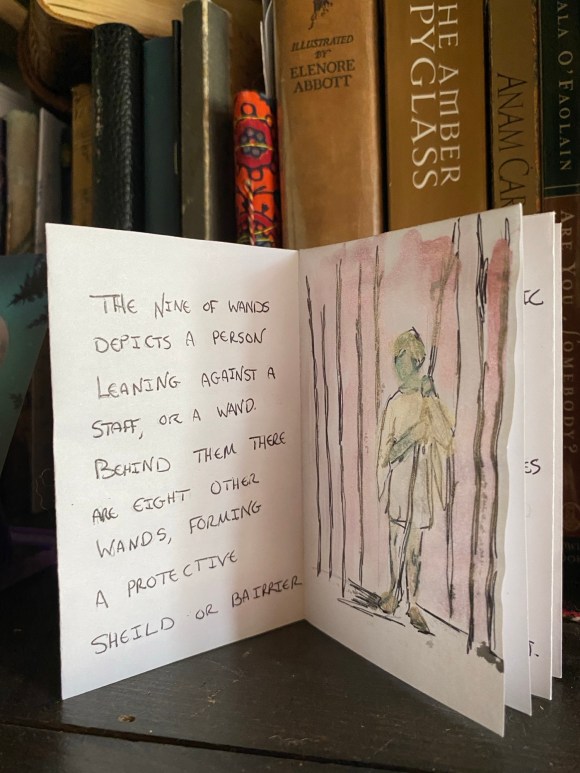 ILLUSTRATED
BY
ELENORE
ABBOTT
THE AMBER
SPYGLASS
ANAM CAR
ALA O'FAOLAIN
ARE YOU SOMEBODY?
THE NINE OF WANDS
DEPICTS A PERSON
LEANING AGAINST A
STAFF, OR A WAND.
BEHIND THEM THERE
ARE EIGHT OTHER
WANDS, FORMING
A PROTECTIVE
SHEILD OR BAIRRIER
IC
ES
T.